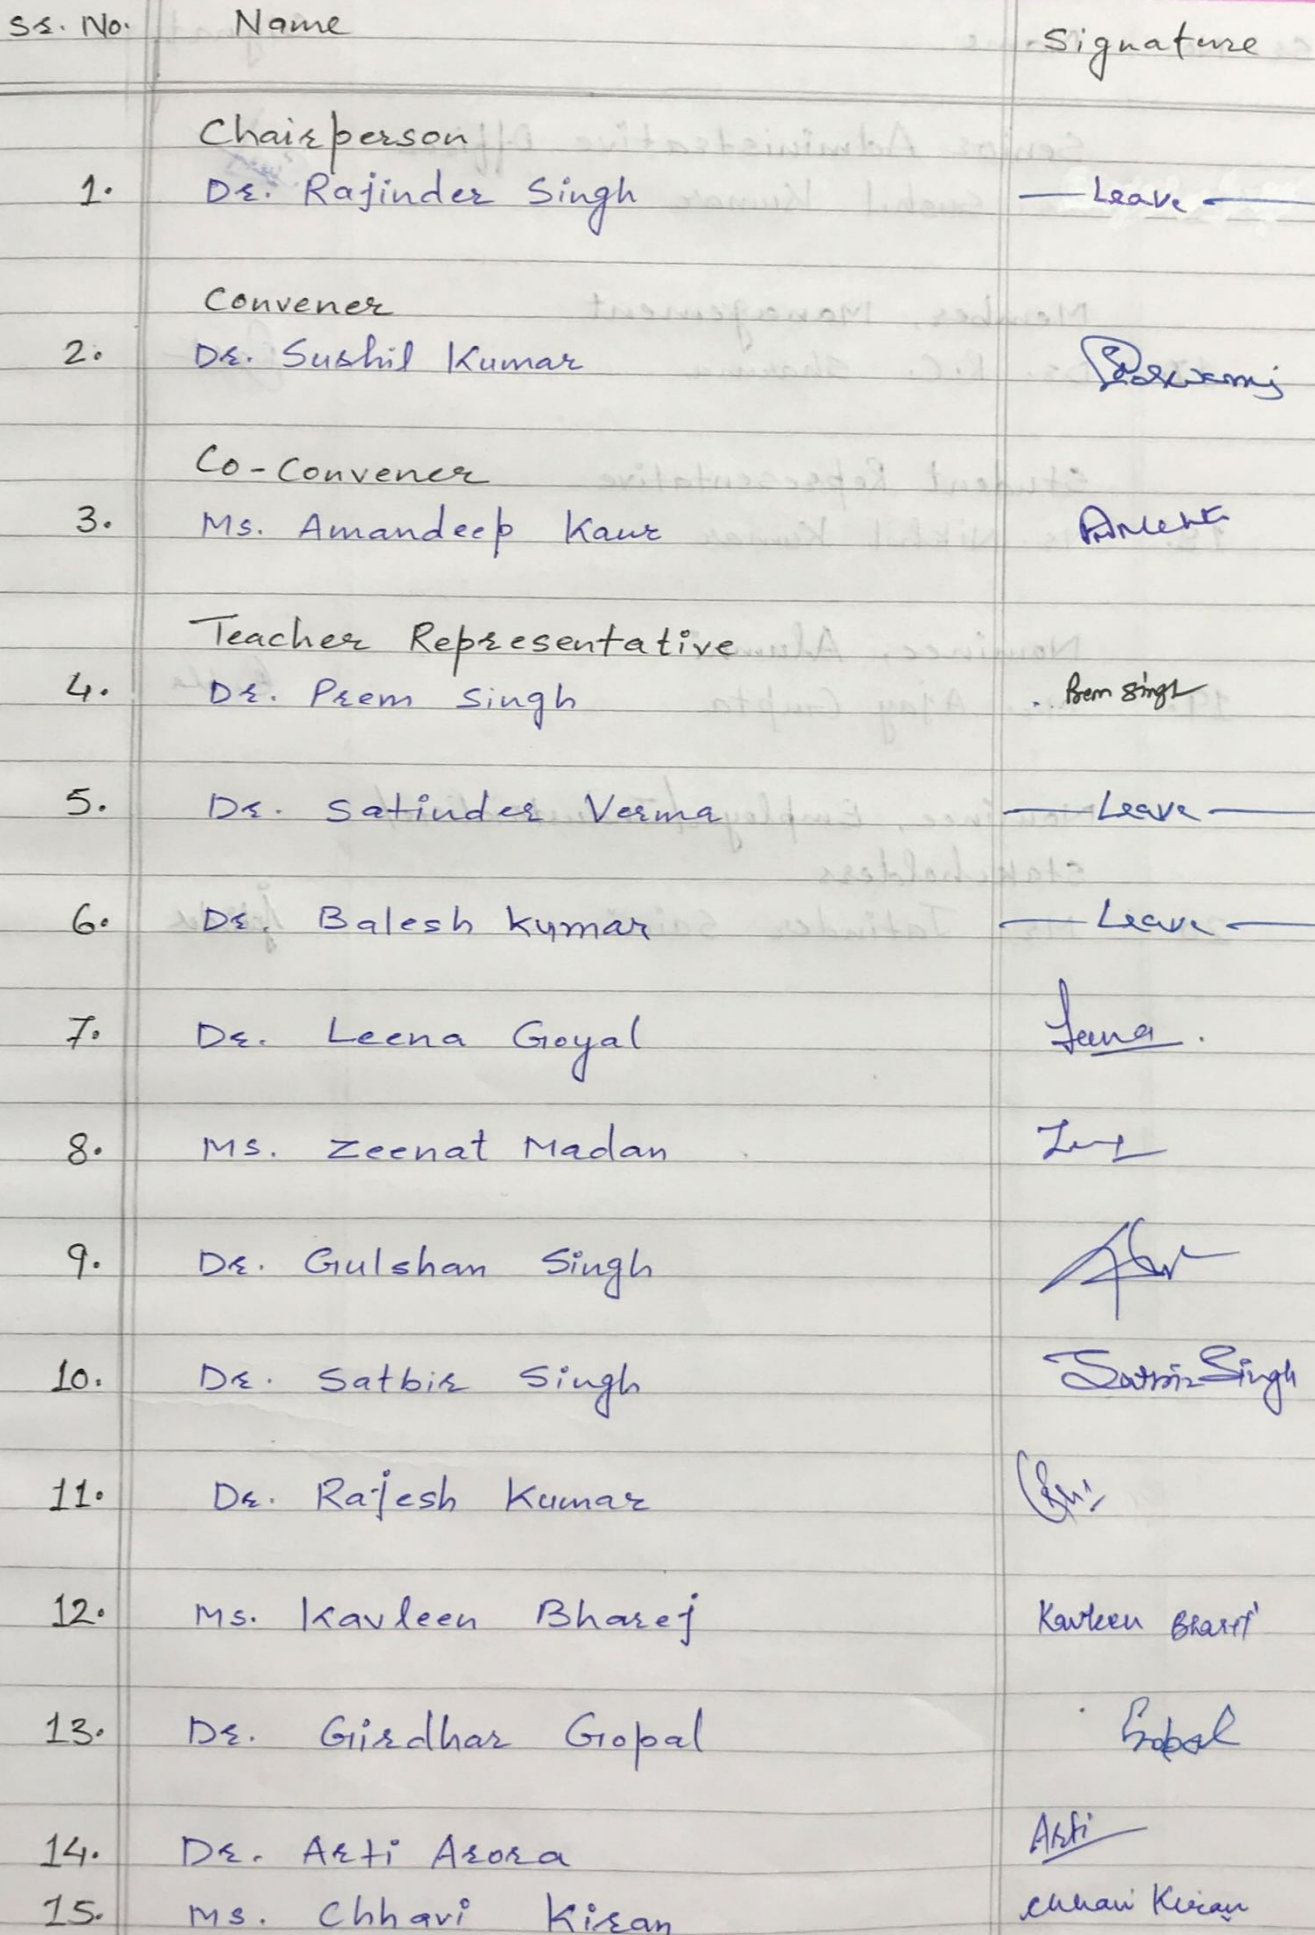 Sr. No. Name Signature
Chairperson
1. Dr. Rajinder Singh — Leave —
Convener
2. Dr. Sushil Kumar
Co-Convener
3. Ms. Amandeep Kaur
Teacher Representative
4. Dr. Prem Singh Prem Singh
5. Dr. Satinder Verma — Leave —
6. Dr. Balesh Kumar — Leave —
7. Dr. Leena Goyal Leena
8. Ms. Zeenat Madan
9. Dr. Gulshan Singh
10. Dr. Satbir Singh Satbir Singh
11. Dr. Rajesh Kumar
12. Ms. Kavleen Bharej Kavleen Bharej
13. Dr. Girdhar Gopal Gopal
14. Dr. Arti Arora Arti
15. Ms. Chhavi Kiran Chhavi Kiran